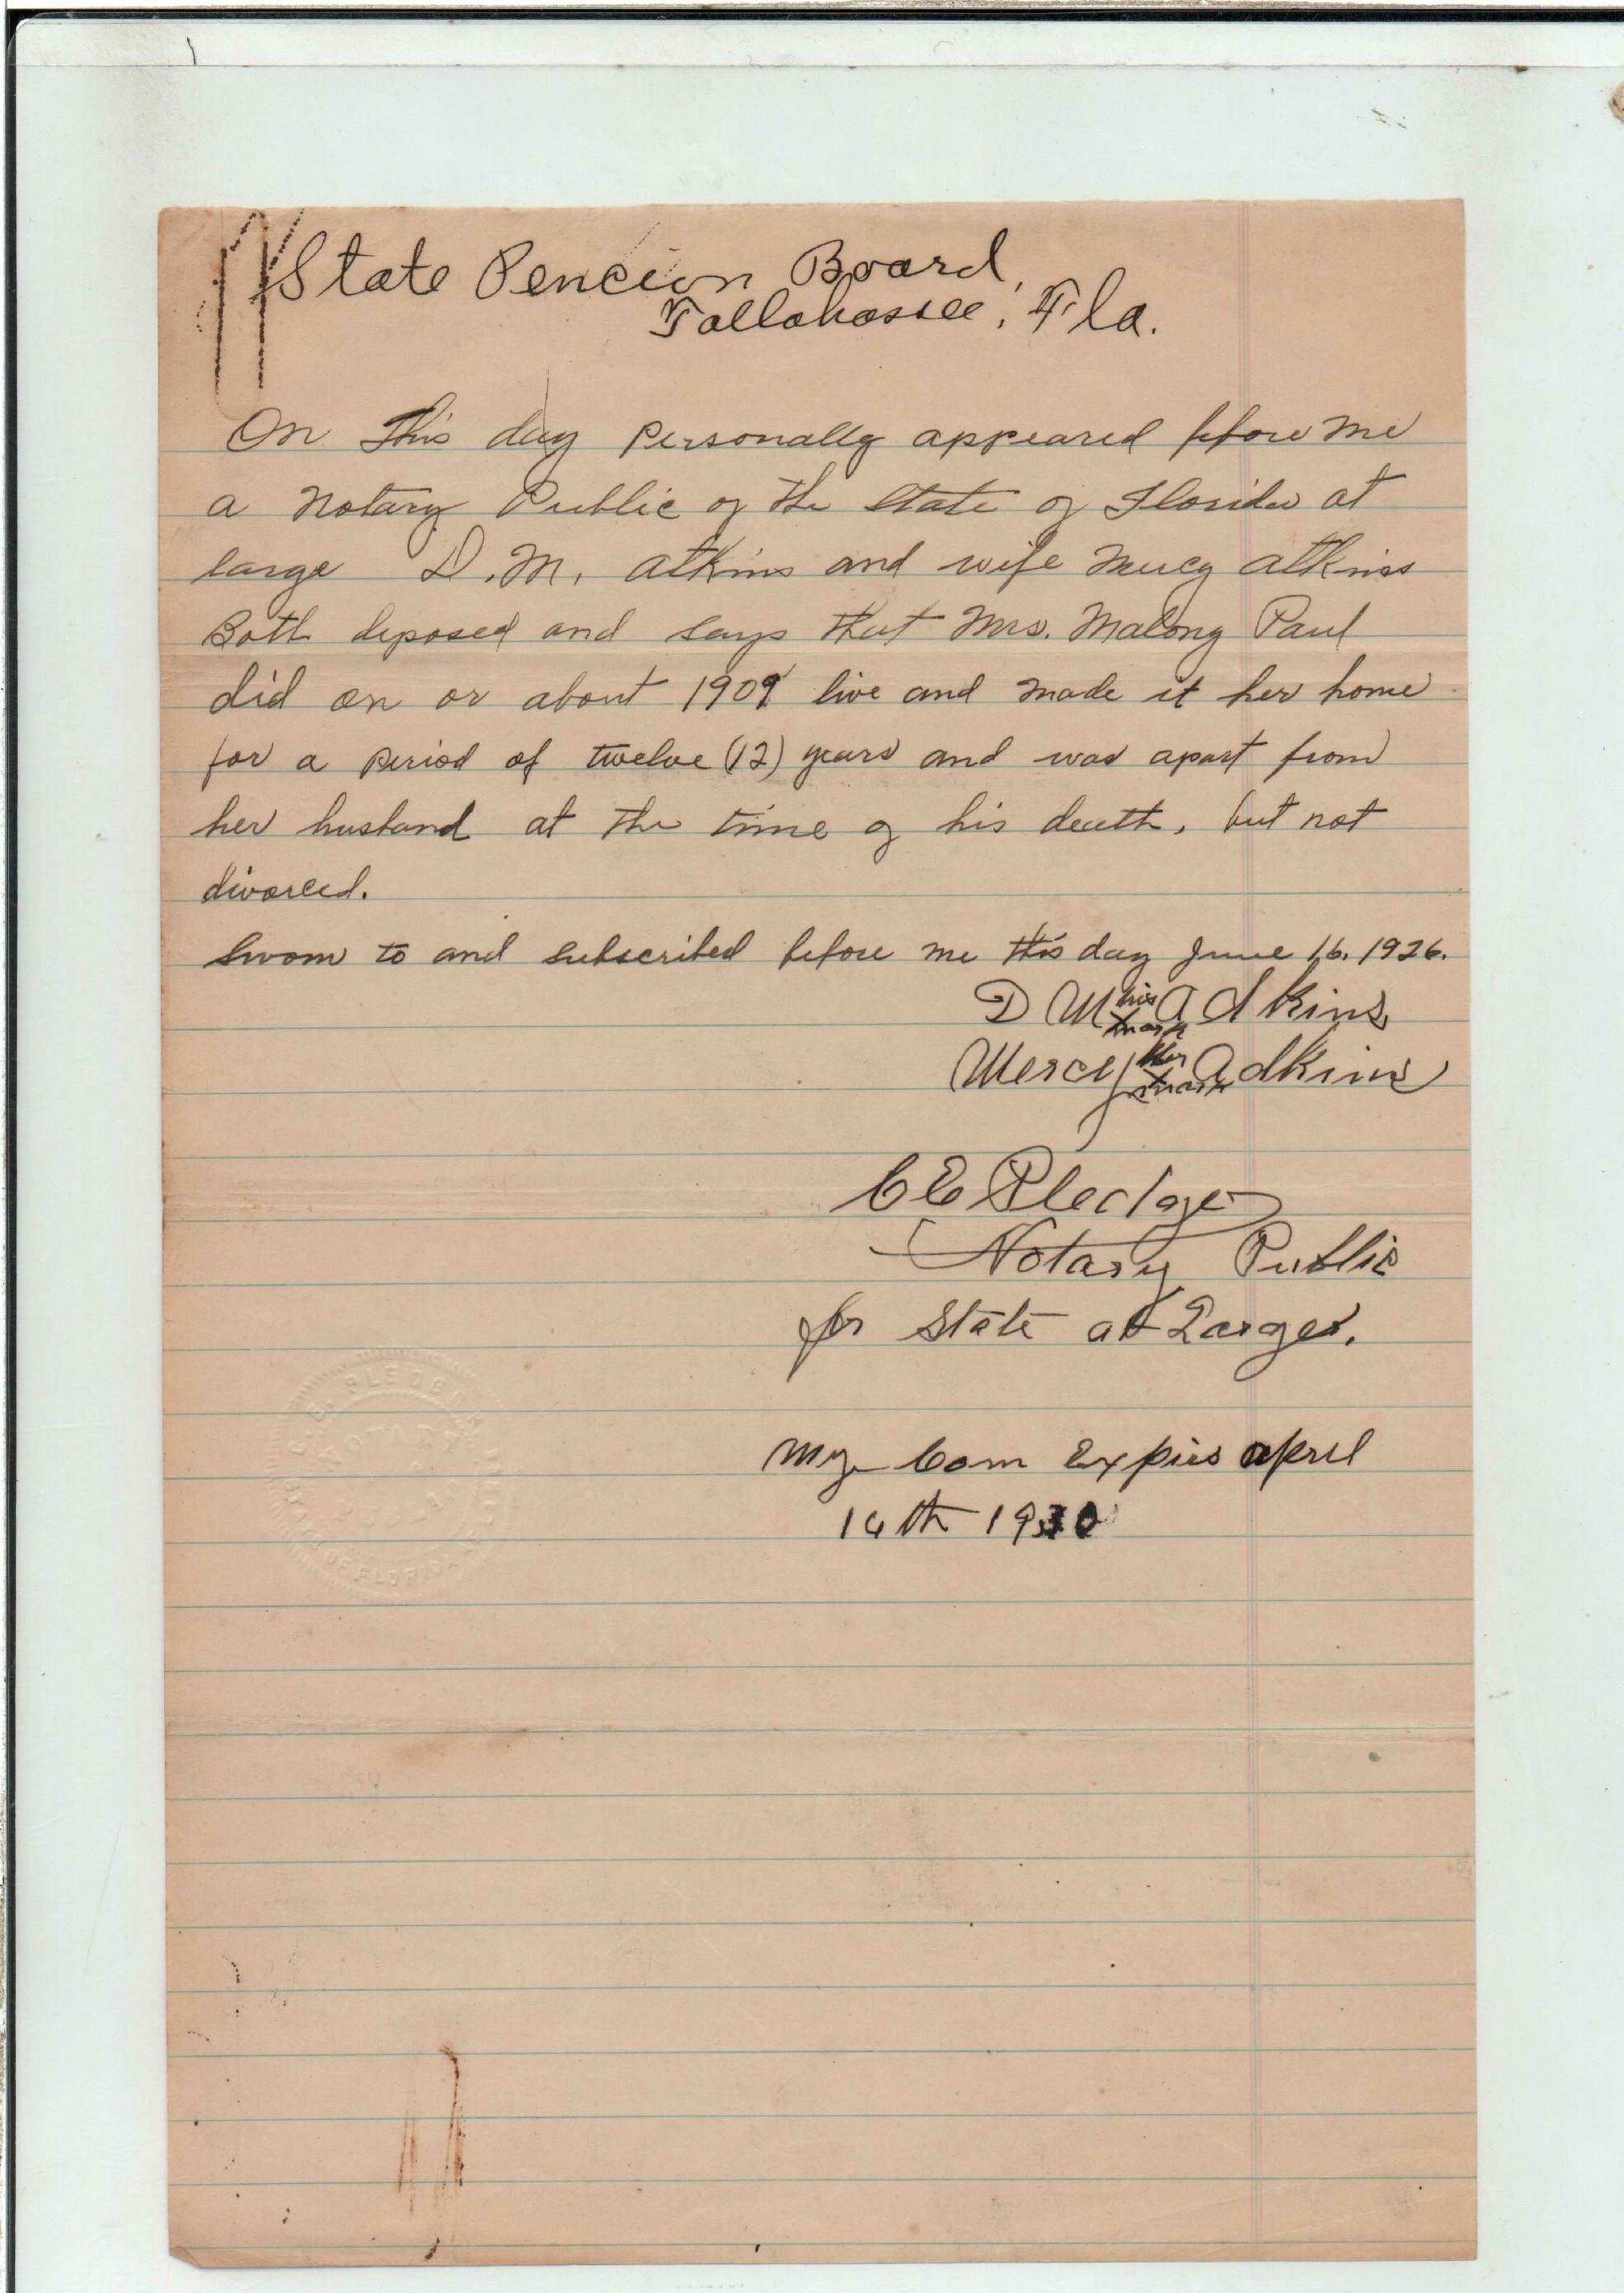 State Pencion Board,
Tallahassee, Fla.
On This day personally appeared before me
a Notary Public of the State of Florida at
large D. M. Atkins and wife Mercy Atkins
Both deposed and says that Mrs. Malong Paul
did on or about 1909 live and made it her home
for a period of twelve (12) years and was apart from
her husband at the time of his death, but not
divorced.
Sworn to and subscribed before me this day June 16. 1926.
D M his x mark Adkins
Mercy Her x mark Adkins
C E Pledger
Notary Public
for State at Large.
My Com Expires April
14th 1930
C. E. PLEDGER
NOTARY
STATE OF FLORIDA